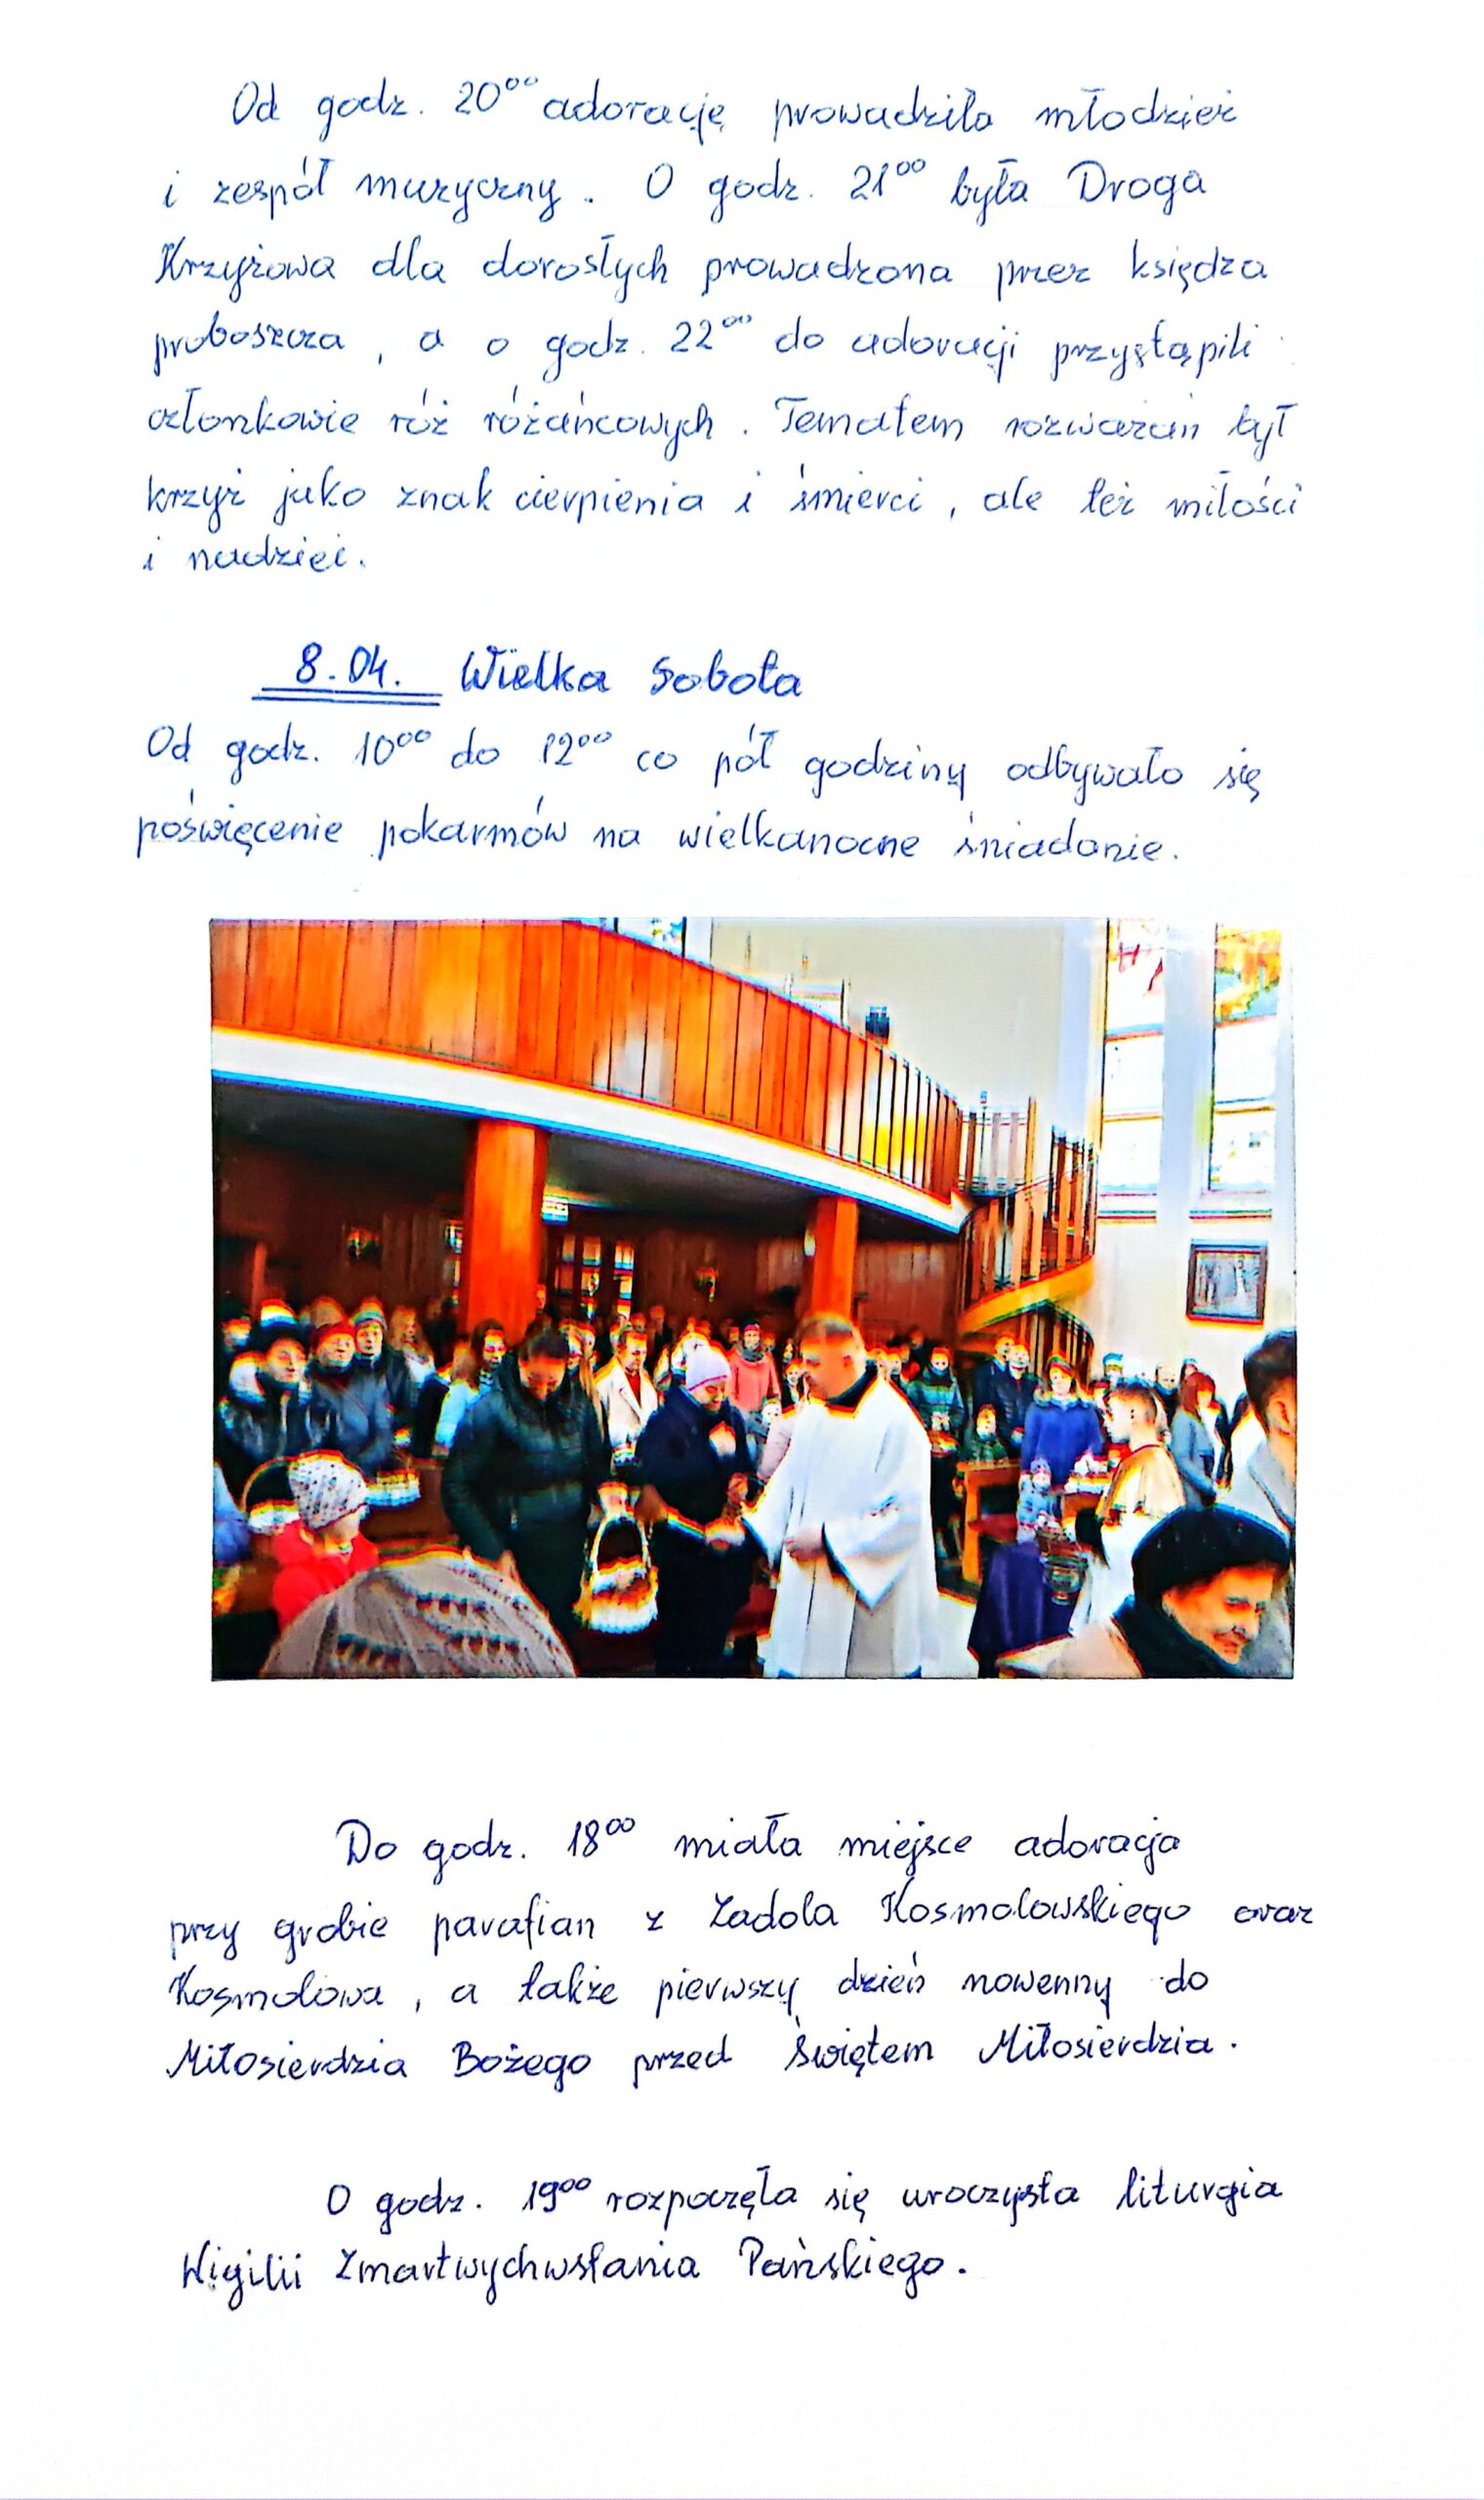 Od godz. 20⁰⁰ adorację prowadziła młodzież
i zespół muzyczny. O godz. 21⁰⁰ była Droga
Krzyżowa dla dorosłych prowadzona przez księdza
proboszcza, a o godz. 22⁰⁰ do adoracji przystąpili
członkowie róż różańcowych. Tematem rozważań był
krzyż jako znak cierpienia i śmierci, ale też miłości
i nadziei.
8.04. Wielka Sobota
Od godz. 10⁰⁰ do 12⁰⁰ co pół godziny odbywało się
poświęcenie pokarmów na wielkanocne śniadanie.
Do godz. 18⁰⁰ miała miejsce adoracja
przy grobie parafian z Zadola Kosmolowskiego oraz
Kosmolowa, a także pierwszy dzień nowenny do
Miłosierdzia Bożego przed Świętem Miłosierdzia.
O godz. 19⁰⁰ rozpoczęła się uroczysta liturgia
Wigilii Zmartwychwstania Pańskiego.